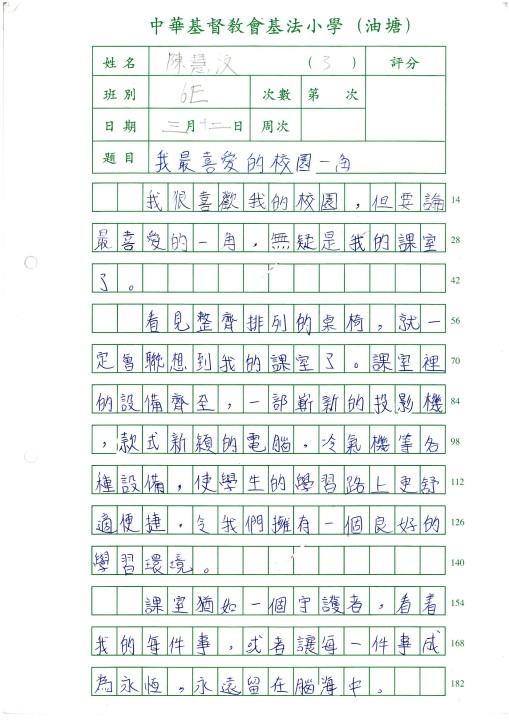 中華基督教會基法小學（油塘）
姓名 陳慧汶 （3） 評分
班別 6E 次數 第 次
日期 三月十二日 周次
題目 我最喜愛的校園一角
我很喜歡我的校園，但要論 14
最喜愛的一角，無疑是我的課室 28
了。 42
看見整齊排列的桌椅，就一 56
定會聯想到我的課室了。課室裡 70
的設備齊全，一部嶄新的投影機 84
，款式新穎的電腦，冷氣機等各 98
種設備，使學生的學習路上更舒 112
適便捷，令我們擁有一個良好的 126
學習環境。 140
課室猶如一個守護者，看着 154
我的每件事，或者讓每一件事成 168
為永恆，永遠留在腦海中。 182